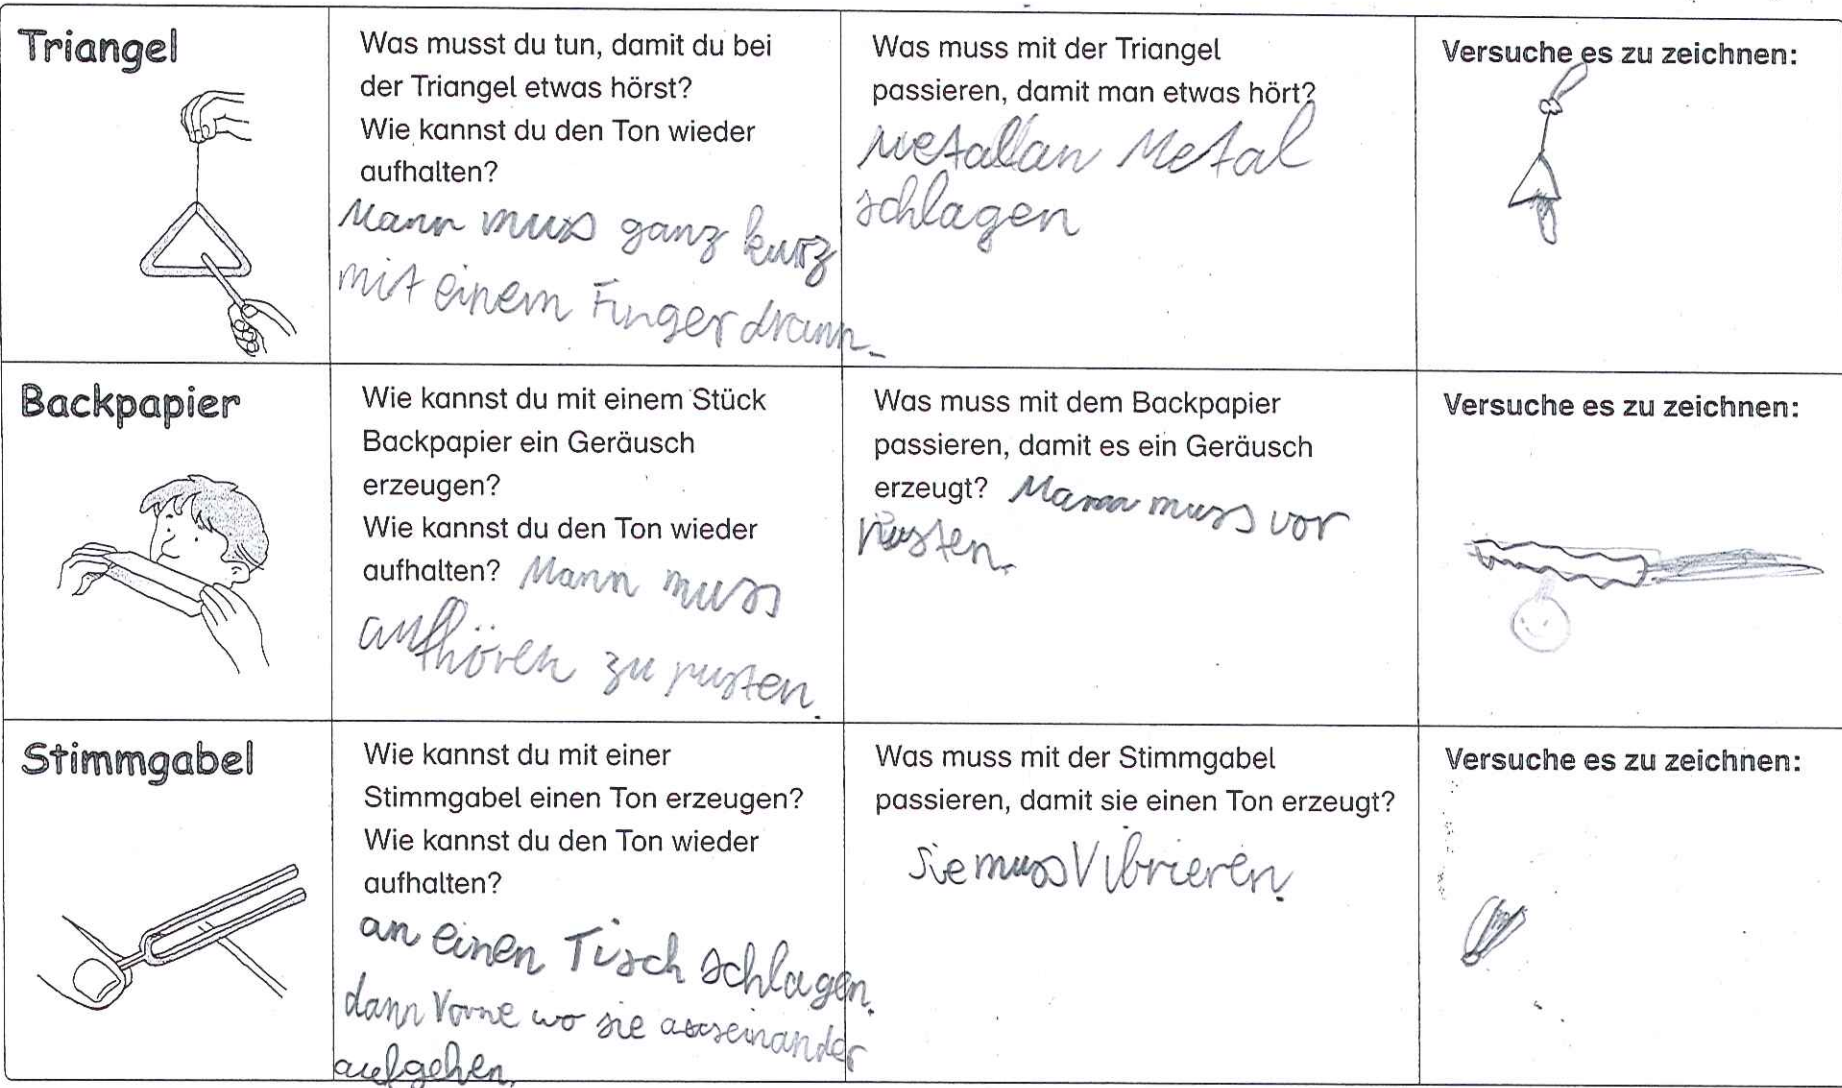 Triangel
Was musst du tun, damit du bei
der Triangel etwas hörst?
Wie kannst du den Ton wieder
aufhalten?
Mann muss ganz kurz
mit einem Finger drann.
Was muss mit der Triangel
passieren, damit man etwas hört?
Metallan Metal
schlagen
Versuche es zu zeichnen:
Backpapier
Wie kannst du mit einem Stück
Backpapier ein Geräusch
erzeugen?
Wie kannst du den Ton wieder
aufhalten? Mann muss
aufhören zu pusten.
Was muss mit dem Backpapier
passieren, damit es ein Geräusch
erzeugt? muss vor
Versuche es zu zeichnen:
Stimmgabel
Wie kannst du mit einer
Stimmgabel einen Ton erzeugen?
Wie kannst du den Ton wieder
aufhalten?
an einen Tisch schlagen.
dann Vorne wo sie auseinander
aufgehen.
Was muss mit der Stimmgabel
passieren, damit sie einen Ton erzeugt?
sie muss Vibrieren.
Versuche es zu zeichnen: